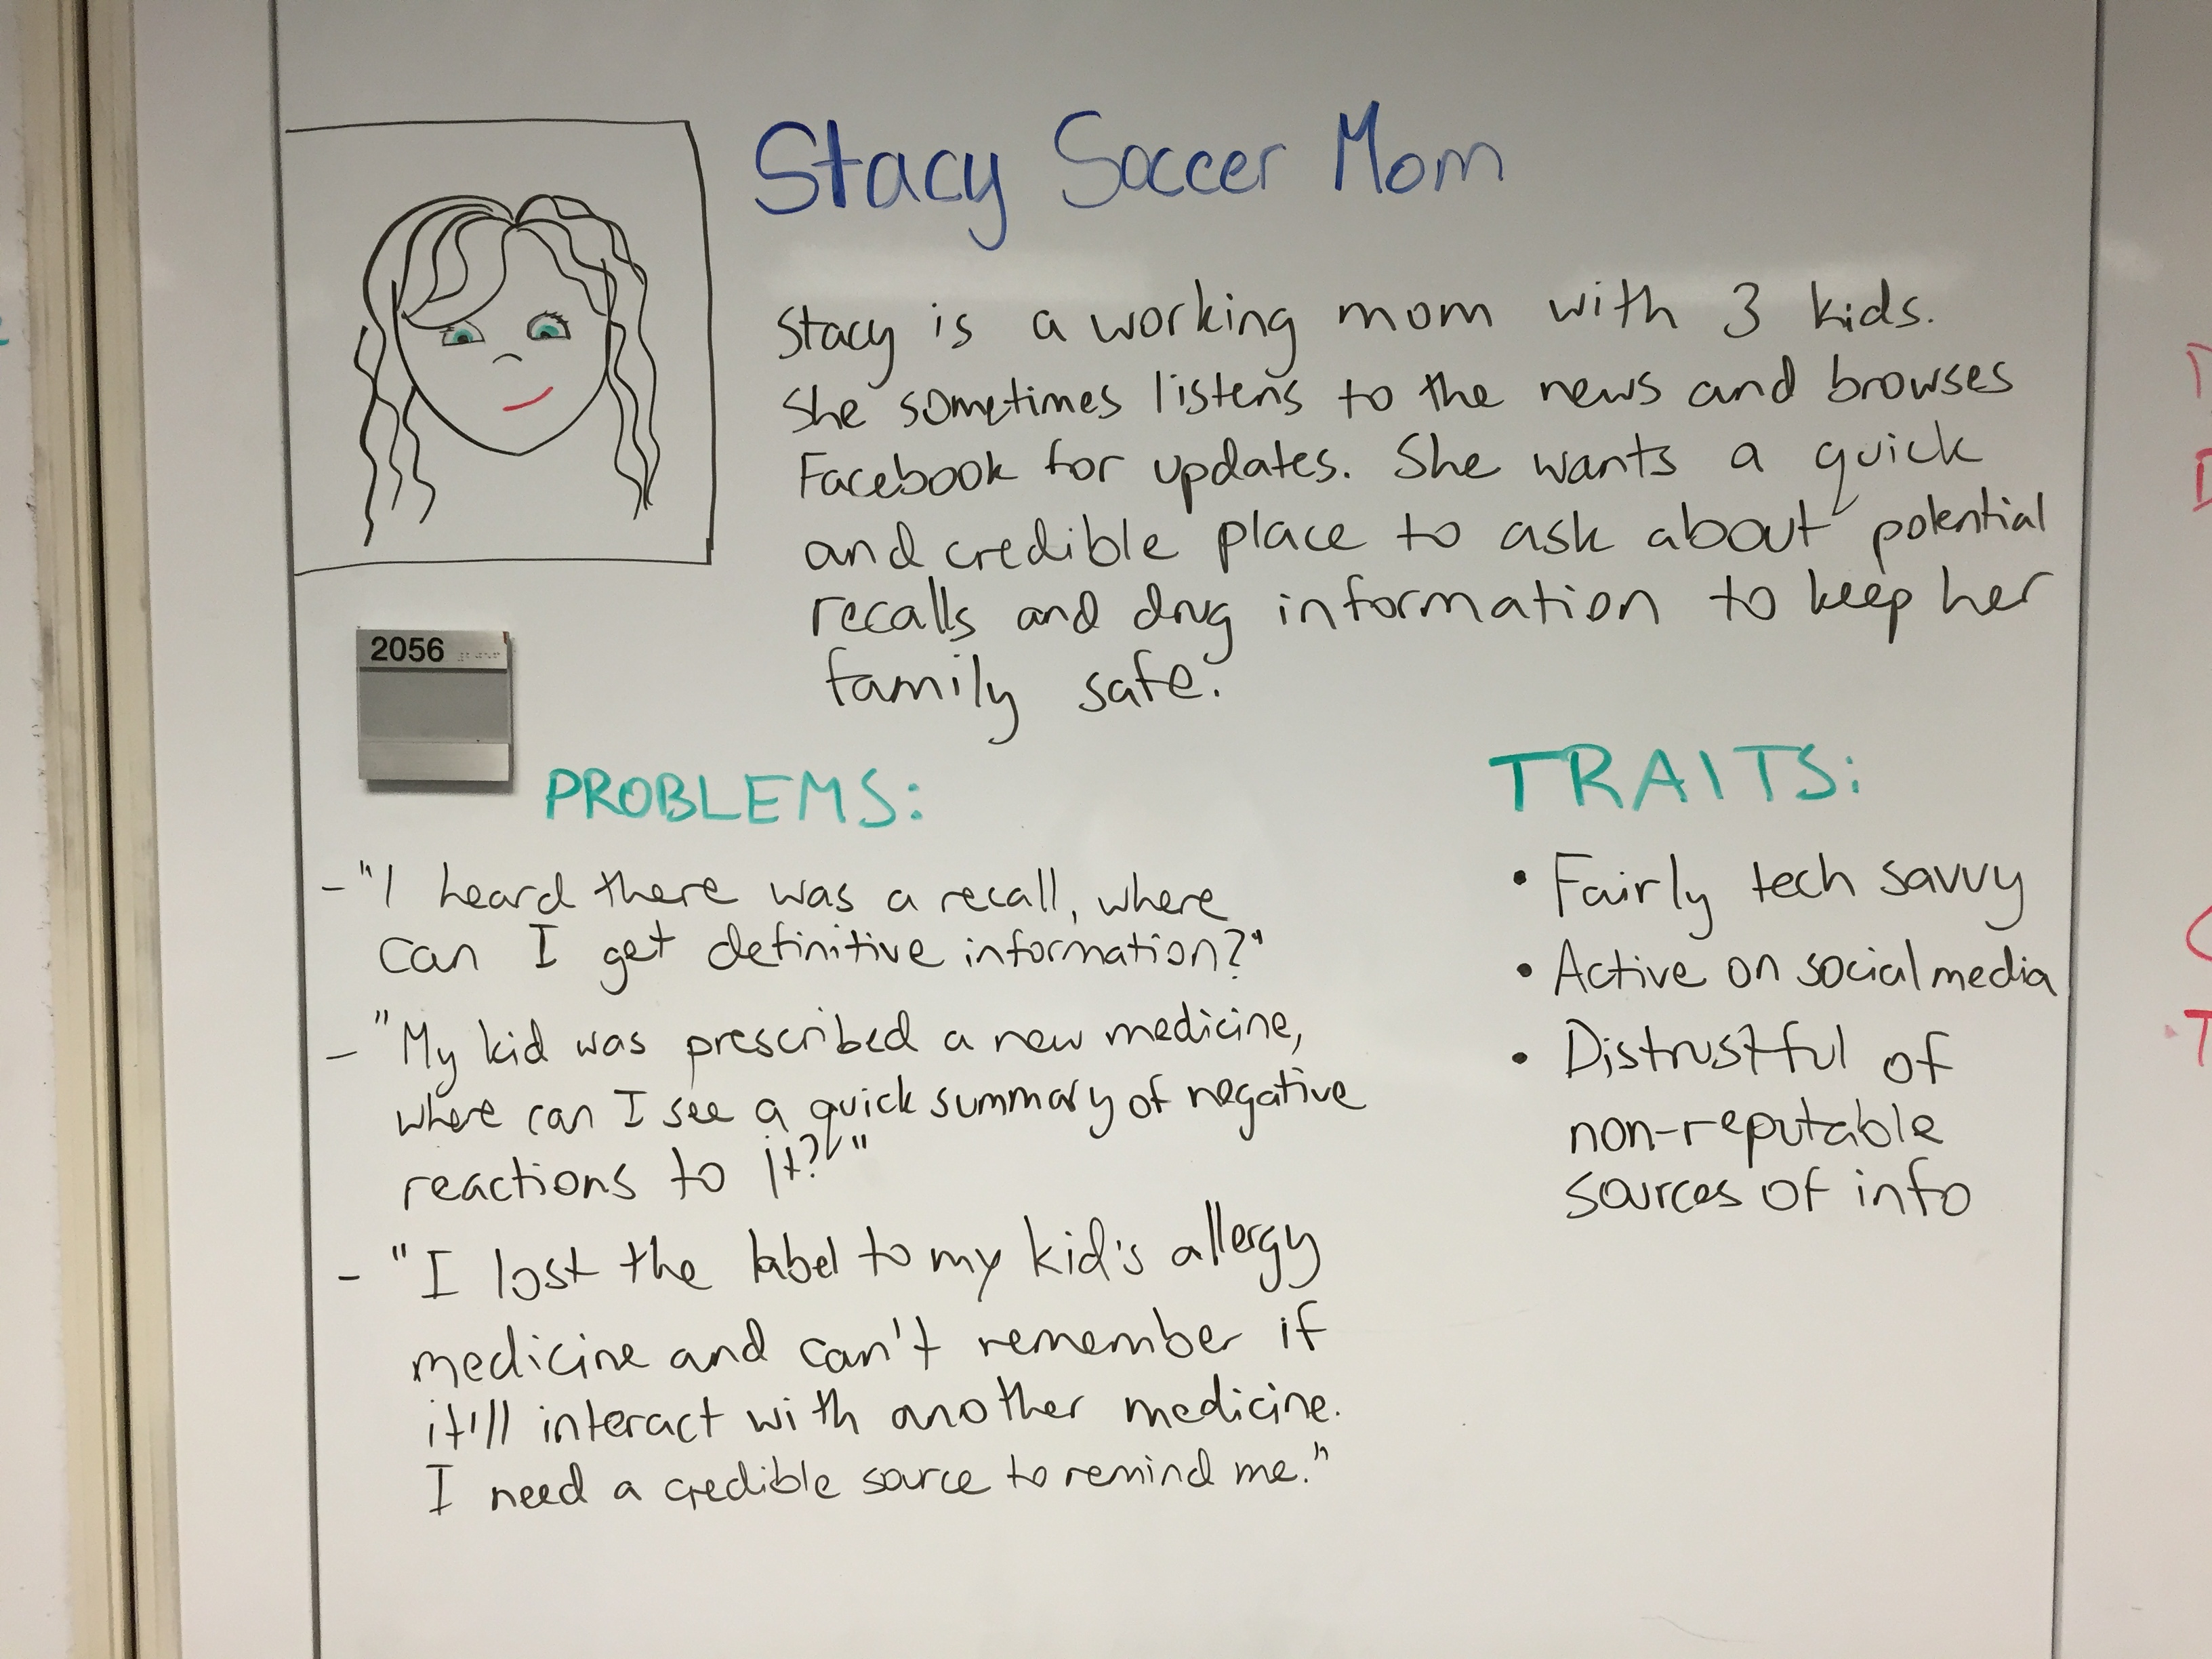 Stacy Soccer Mom
Stacy is a working mom with 3 kids.
She sometimes listens to the news and browses
Facebook for updates. She wants a quick
and credible place to ask about potential
recalls and drug information to keep her
family safe.
2056
PROBLEMS:
- "I heard there was a recall, where
can I get definitive information?"
- "My kid was prescribed a new medicine,
where can I see a quick summary of negative
reactions to it?"
- "I lost the label to my kid's allergy
medicine and can't remember if
it'll interact with another medicine.
I need a credible source to remind me."
TRAITS:
• Fairly tech savvy
• Active on social media
• Distrustful of
non-reputable
sources of info